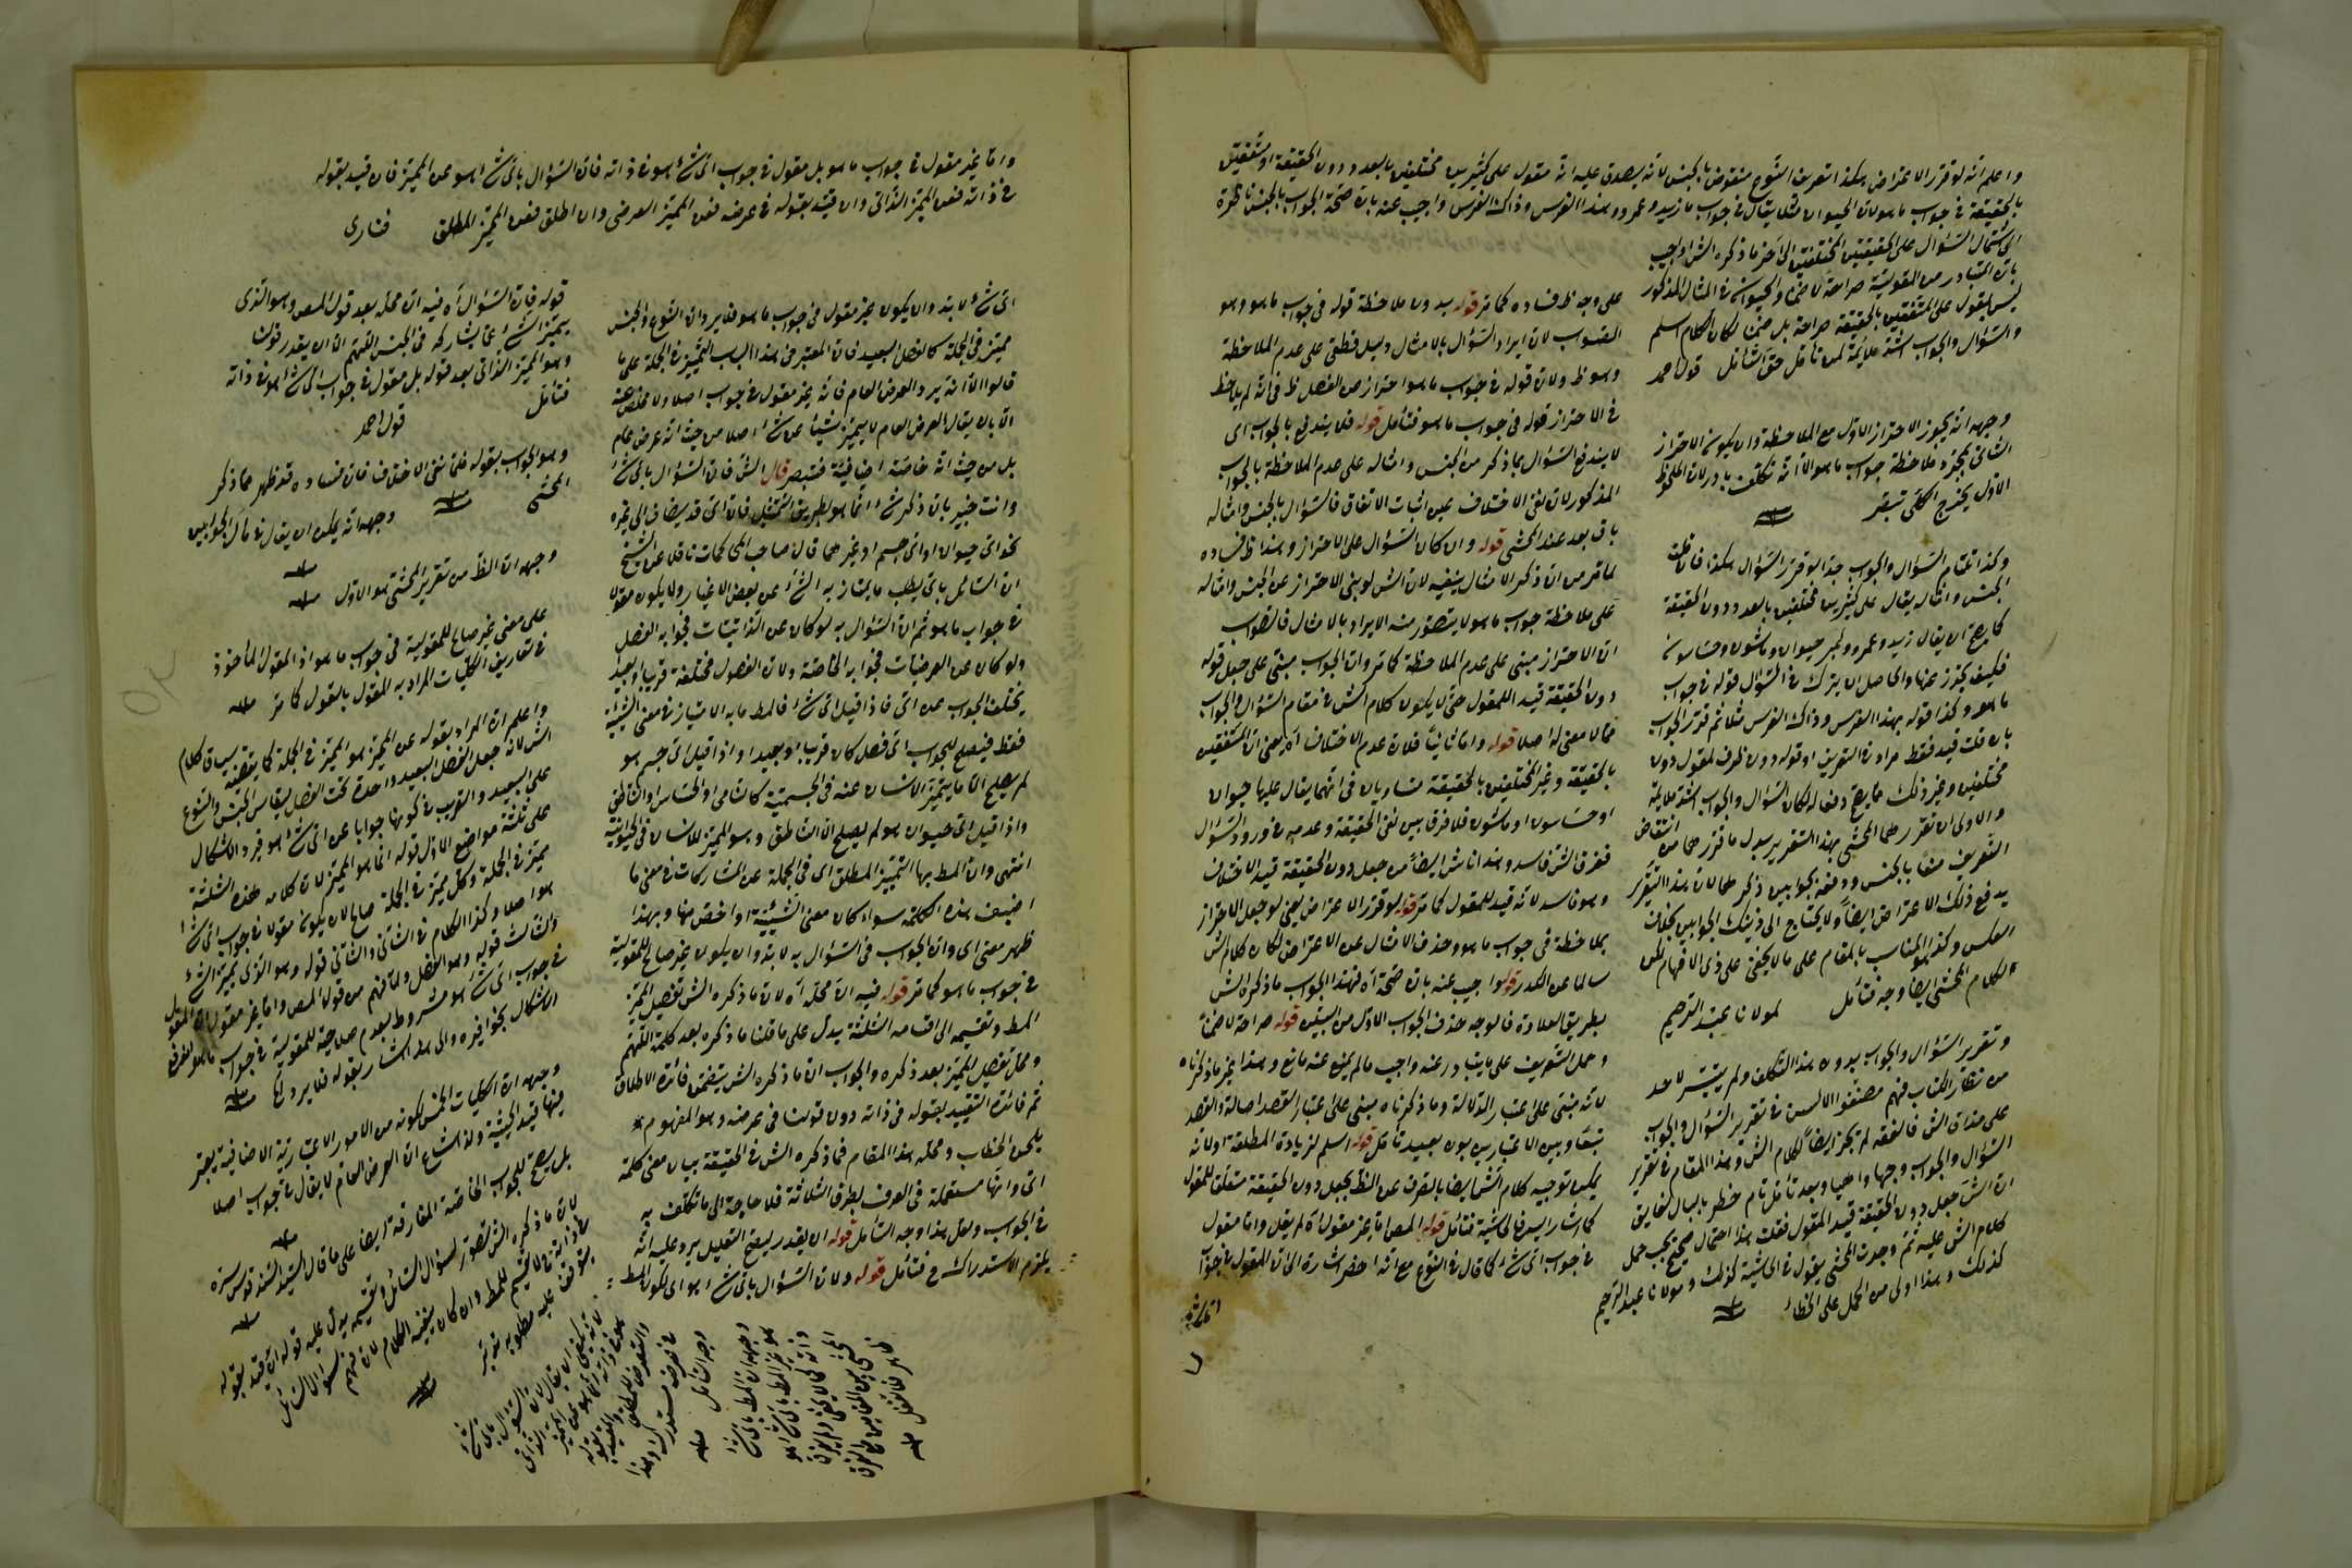 واعلم انه لو قرر الاعتراض هكذا تعريف النوع منقوض بالجنس لانه يصدق عليه انه مقول على كثيرين مختلفين بالعدد دون الحقيقة او متفقين
بالحقيقة في جواب ما هو لان الحيوان مثلا يقال في جواب ما زيد وعمرو وهذا الفرس وذاك الفرس واجيب عنه بان صحة الجواب بالجنس ناظرة
الى اشتمال السؤال على الحقيقتين المختلفتين الى آخر ما ذكره الش واجيب
بان المتبادر من المقولية صراحة لا ضمنا والحيوان في المثال المذكور
ليس بمقول على المتفقين بالحقيقة صراحة بل ضمنا لكان الكلام اسلم
والسؤال والجواب اشد ملائمة لمن تأمل حق التأمل قول احمد
وجهه انه يجوز الاحتراز الاول مع الملاحظة وان يكون الاحتراز
الثاني بمجرد ملاحظة جواب ما هو الا انه تكلف بارد لان الملحوظ
الاول يخرج الكلي تبصر
وكذا عتمام السؤال والجواب جدا لو قرر السؤال هكذا فان قلت
الجنس وامثاله يقال على كثيرين مختلفين بالعدد دون الحقيقة
كما يصح ان يقال زيد وعمرو وبكر حيوان وماشون وحساسون
فكيف يحترز عنها والحاصل ان يترك في السؤال قوله في جواب
ما هو وكذا قوله بهذا الفرس وذاك الفرس مثلا ثم قرر الجواب
بان قلت قيد فقط مراد في التعريف او قوله دون ظرف لمقول دون
مختلفين وغير ذلك مما يصح دفعا له لكان السؤال والجواب اشد ملائمة
والاولى ان تقرر كلام المحشي بهذا التقرير بدل ما قرر كلامه من انتقاض
التعريف منعا بالجنس ودفعه بجوابين ذكر كلاما لان هذا التقرير
يدفع ذلك الاعتراض ايضا ولا يحتاج الى ذينك الجوابين بخلاف
العكس وكذا المناسب بالمقام على ما لا يخفى على ذي الافهام لكن
لكلام المحشي ايضا وجه فتأمل لمولانا عبد الرحيم
وتقرير السؤال والجواب بدون هذا التكلف ولم يتيسر لاحد
من نظار الكتاب فهم مصنفوا الالسن في تقرير السؤال والجواب
على مذاق الش فالفقه لم يجز ايضا لكلام الش وهذا المقام في تقرير
السؤال والجواب وجها واضحا وبعد تأمل تام خطر بالبال لفايق
ان الش جعل دون الحقيقة قيد المقول فقلت هذا احتمال صحيح يجب حمل
كلام الش عليه ثم وجدت المحشي يقول في الحاشية كذلك ومولانا عبد الرحيم
كذلك وهذا اولى من الحمل على الخطاء
على وجه ظ فساده كما مر قوله بدون ملاحظة قوله في جواب ما هو وهو
الصواب لان ايراد السؤال بالامثال دليل قطعي على عدم الملاحظة
وهو ظ ولان قوله في جواب ما هو احتراز من الفصل ظ في انه لم يلاحظ
في الاحتراز قوله في جواب ما هو فتأمل قوله فلا يندفع بالجواب اى
لا يندفع السؤال بما ذكر من الجنس وامثاله على عدم الملاحظة بالجواب
المذكور لان نفى الاختلاف عين اثبات الاتفاق فالسؤال بالجنس وامثاله
باق بعد عند المحشي قوله وان كان السؤال على الاحتراز وهذا ظ فساده
لما مر من ان ذكر الامثال ينفيه لان الش لو بنى الاحتراز عن الجنس وامثاله
على ملاحظة جواب ما هو لا يتصور منه الايراد بالامثال فالصواب
ان الاحتراز مبنى على عدم الملاحظة كما مر وان الجواب مبنى على جعل قوله
دون الحقيقة قيد اللمقول حتى لا يكون كلام الش في مقام السؤال والجواب
مما لا معنى له اصلا قوله واما ثانيا فلان عدم الاختلاف آه يعنى ان المتفقين
بالحقيقة وغير المختلفين بالحقيقة متساويان في انهما يقال عليهما حيوان
او حساسون او ماشون فلا فرق بين نفى الحقيقة وعدمه في ورود السؤال
ففرق الش فاسد وهذا ناش ايضا من جعل دون الحقيقة قيد الاختلاف
وهو فاسد لانه قيد للمقول كما مر قوله لو قرر الاعتراض يعنى لو جعل الاحتراز
بملاحظة في جواب ما هو وحذف الامثال عن الاعتراض لكان كلام الش
سالما عن الكدر قوله واجيب عنه بان صحة آه فهذا الجواب ما ذكره الش
بطريق العلاوة فالوجه حذف الجواب الاول من البين قوله صراحة لا ضمنا
وحمل التعريف على ما يتبادر عنه واجب ما لم يمنع عنه مانع وهذا غير ما ذكرناه
لانه مبنى على اعتبار الدلالة وما ذكرناه مبنى على اعتبار القصد اصالة والقصد
تبعا وبين الاعتبارين بون بعيد تأمل قوله اسلم لزيادة المطلقة اولا لانه
يمكن توجيه كلام الش ايضا بالصرف عن الظ بجعل دون الحقيقة متعلقا للمقول
كما اشار اليه في الحاشية فتأمل قوله المص اما غير مقول آه لم يقل واما مقول
في جواب اى شئ كما قال في النوع مع انه اخصر اشارة الى ان المقول في جواب
اى شئ
واما غير مقول في جواب ما هو بل مقول في جواب اى شئ هو في ذاته فان السؤال باى شئ هو عن المميز فان قيد بقوله
في ذاته فعن المميز الذاتي وان قيد بقوله في عرضه فعن المميز العرضي وان اطلق فعن المميز المطلق فنارى
اى شئ لا بد وان يكون غير مقول في جواب ما هو فلا يرد ان النوع والجنس
مميز في الجملة كالفصل البعيد فان المعتبر في هذا الباب التمييز في الجملة على ما
قالوا الا انه يرد العرض العام فانه غير مقول في جواب اصلا ولا مخلص عنه
الا بان يقال العرض العام لا يميز شيئا عن شئ اصلا من حيث انه عرض عام
بل من حيث انه خاصة اضافية فتبصر قال الش فان السؤال باى شئ
وانت خبير بان ذكر شئ انما هو بطريق التمثيل فان اى قد يضاف الى غيره
نحو اى حيوان او اى جسم او غيرهما قال صاحب المحاكمات ناقلا عن الشيخ
ان السائل باى يطلب ما يمتاز به الشئ عن بعض الاغيار ولا يكون مقولا
في جواب ما هو ثم ان السؤال به لو كان عن الذاتيات فجوابه الفصل
ولو كان عن العرضيات فجوابه الخاصة ولان الفصول مختلفة قريبا وبعيدا
يختلف الجواب عن اى فاذا قيل اى شئ فالمط ما به الامتياز في معنى الشيئية
فقط فيصلح للجواب اى فصل كان قريبا او بعيدا واذا قيل اى جسم هو
لم يصلح الا ما يميز الانسان عنه في الجسمية كالنامي او الحساس او الناطق
واذا قيل اى حيوان هو لم يصلح الا الناطق وهو المميز للانسان في الحيوانية
انتهى وان المط بها التمييز المطلق اى في الجملة عن المشاركات في معنى ما
اضيف هذه الكلمة سواء كان معنى الشيئية او اخص منها وبهذا
ظهر معنى اى وان الجواب في السؤال به لا بد وان يكون غير صالح للمقولية
في جواب ما هو كما مر قوله فيه ان محله آه لان ما ذكره الش تفصيل المميز
المط وتقسيمه الى اقسامه الثلثة يدل على ما قلنا ما ذكره بعد كلمة اللهم
ومحل تفصيل المميز بعد ذكره والجواب ان ما ذكره الش يتضمن فائدة الاطلاق
ثم فائدة التقييد بقوله في ذاته دون قولنا في عرضه وهو المفهوم
بلحن الخطاب ومحله هذا المقام فما ذكره الش في الحقيقة بيان معنى كلمة
اى وانها مستعملة في العرف بطرق الثلاثة فلا حاجة الى ما تكلف به
في الجواب ولعل هذا وجه التأمل قوله ان يقدر ليصح التعليل يرد عليه انه
يلزم الاستدراك ح فتأمل قوله ولان السؤال باى شئ هو اى لكون المط
قوله فان السؤال آه فيه ان محله بعد قول المص وهو الذي
يميز الشئ عما يشاركه في الجنس اللهم الا ان يقدر قولنا
وهو المميز الذاتي بعد قوله بل مقول في جواب اى شئ هو في ذاته
فتأمل قول احمد
وهو الجواب بقوله فلما نفى الاختلاف فان فساده قد ظهر مما ذكر
المحشي وجهه انه يمكن ان يقال في مآل الجوابين
وجهه ان الظ من تقرير المحشي هو الاول
على معنى غير صالح للمقولية في جواب ما هو اذ المقول المأخوذ
في تعاريف الكليات المراد به المقول بالقول كما مر
واعلم ان المراد بقوله عن المميز هو المميز في الجملة كما يقتضيه سياق كلام
الش لانه جعل الفصل البعيد واحدة تحت الفصل بقياس الجنس والنوع
على البعيد والقريب في كونها جوابا عن اى شئ هو فيرد الاشكال
على ثلثة مواضع الاول قوله انما هو المميز لان كلامه هذه الثلثة
مميز في الجملة وكل مميز في الجملة صالح لان يكون مقولا في جواب اى شئ
هو اصلا وكذا الكلام في الثاني والثاني قوله وهو الذي يميز الشئ
والثالث قوله وهو الفصل والمفهوم من قول المص واما غير مقول
في جواب اى شئ هو مشروط بعدم صلاحية المقولية في جواب ما هو
الاشكال بحذافيره والى هذا اشار بقوله فلا يرد آه
وجهه ان الكليات الخمس لكونه من الامور الاعتبارية الاضافية يعتبر
فيها قيد الحيثية ولذا شاع ان العرض العام لا يقال في جواب اصلا
بل يصح للجواب الخاصة المفارقة ايضا على ما قال السيد السند قدس سره
لان ما ذكره الش تصوير لسؤال السائل وتقسيمه يدل عليه قوله ان قيد بقوله
في ذاته
يتوقف عليه مطلوبه تدبر
وجه التأمل
ظاهر فتأمل